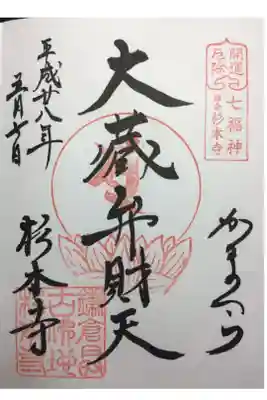 開運
厄除
七福神
鎌倉杉本寺
かまくら
大蔵弁財天
平成廿八年
五月十日
杉本寺
鎌倉最
古佛地